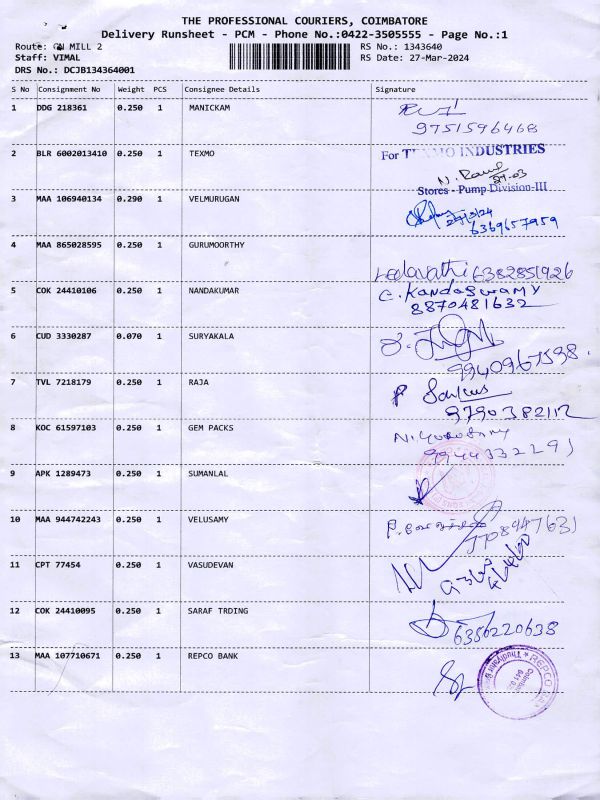 THE PROFESSIONAL COURIERS, COIMBATORE
Delivery Runsheet - PCM - Phone No.:0422-3505555 - Page No.:1
Route: GN MILL 2
RS No.: 1343640
Staff: VIMAL
RS Date: 27-Mar-2024
DRS No.: DCJB134364001
S No Consignment No Weight PCS Consignee Details Signature
1 DDG 218361 0.250 1 MANICKAM
9751596468
2 BLR 6002013410 0.250 1 TEXMO
For TEXMO INDUSTRIES
Stores - Pump Division-III
3 MAA 106940134 0.290 1 VELMURUGAN
6369657959
4 MAA 865028595 0.250 1 GURUMOORTHY
Leelavathi 6382851926
5 COK 24410106 0.250 1 NANDAKUMAR
C. KANDASWAMY
8870481632
6 CUD 3330287 0.070 1 SURYAKALA
9940967598.
7 TVL 7218179 0.250 1 RAJA
8 KOC 61597103 0.250 1 GEM PACKS
9 APK 1289473 0.250 1 SUMANLAL
10 MAA 944742243 0.250 1 VELUSAMY
11 CPT 77454 0.250 1 VASUDEVAN
12 COK 24410095 0.250 1 SARAF TRDING
6386220638
13 MAA 107710671 0.250 1 REPCO BANK
REPCO